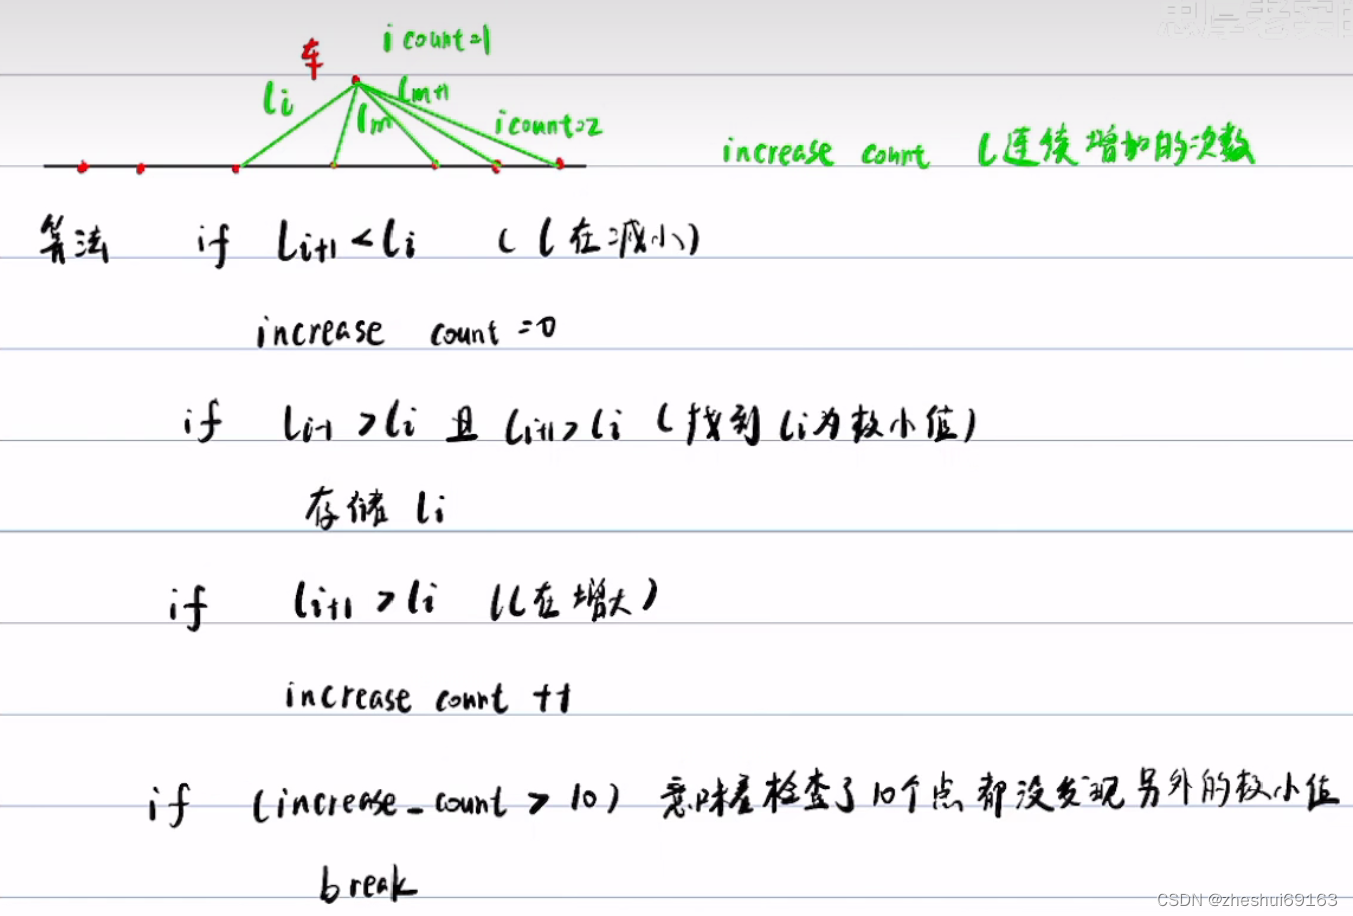 忠厚老实的
车 i count=1
li lm lm+1 i count=2
increase count l连续增加的次数
算法 if li+1<li (l在减小)
increase count =0
if li-1>li 且 li+1>li (找到li为极小值)
存储 li
if li+1>li (l在增大)
increase count ++
if (increase_count > 10) 意味着检查了10个点都没发现另外的极小值
break
CSDN @zheshui69163